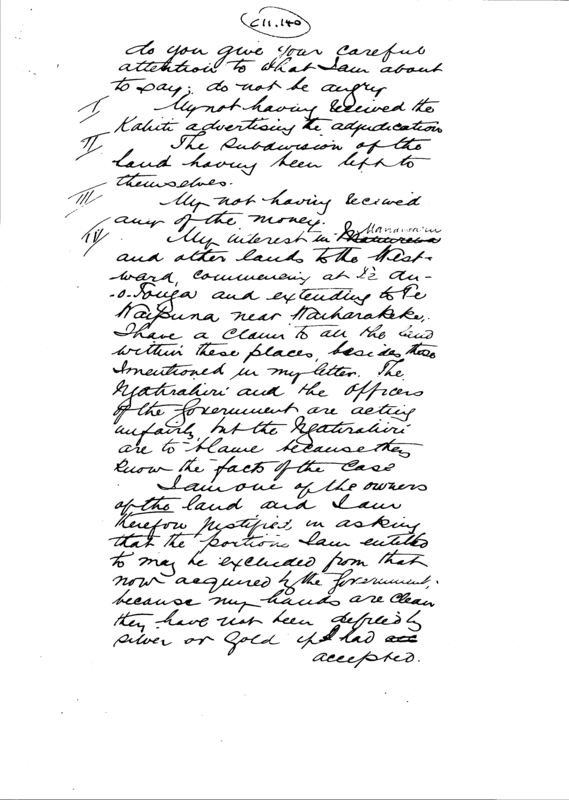 C11.140
do you give your careful
attention to what I am about
to say; do not be angry
I My not having received the
Kahiti advertising the adjudication
II The Subdivision of the
land having been left to
themselves.
III My not having received
any of the money.
IV My interest in
and other lands to the West-
ward, commencing at
and extending to Te
Waipuna near Waiharakeke,
I have a claim to all the land
within these places, besides those
I mentioned in my letter. The
Ngatirahiri and the Officers
of the Government are acting
unfairly, but the Ngatirahiri
are to blame because they
know the facts of the case
I am one of the owners
of the land and I am
therefore justified in asking
that the portion I am entitled
to may be excluded from that
now acquired by the Government,
because my hands are clean
they have not been defiled by
silver or gold if I had
accepted.